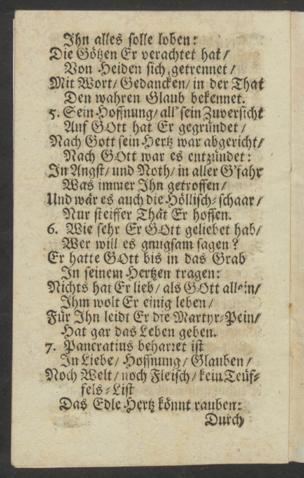 Ihn alles solle loben:
Die Götzen Er verachtet hat/
Von Heiden sich getrennet/
Mit Wort/ Gedancken/ in der That
Den wahren Glaub bekennet.
5. Sein Hoffnung/ all' sein Zuversicht
Auf GOtt hat Er gegründet/
Nach Gott sein Hertz war abgericht/
Nach GOtt war es entzündet:
In Angst/ und Noth/ in aller G'fahr
Was immer Ihn getroffen/
Und wär es auch die Höllisch-schaar/
Nur steiffer Thät Er hoffen.
6. Wie sehr Er GOtt geliebet hab/
Wer will es gnugsam sagen?
Er hatte GOtt bis in das Grab
In seinem Hertzen tragen:
Nichts hat Er lieb/ als GOtt allein/
Ihm wolt Er einig leben/
Für Ihn leidt Er die Martyr-Pein/
Hat gar das Leben geben.
7. Pancratius beharret ist
In Liebe/ Hoffnung/ Glauben/
Noch Welt/ noch Fleisch/ kein Teüf-
fels-List
Das Edle Hertz könnt rauben:
Durch